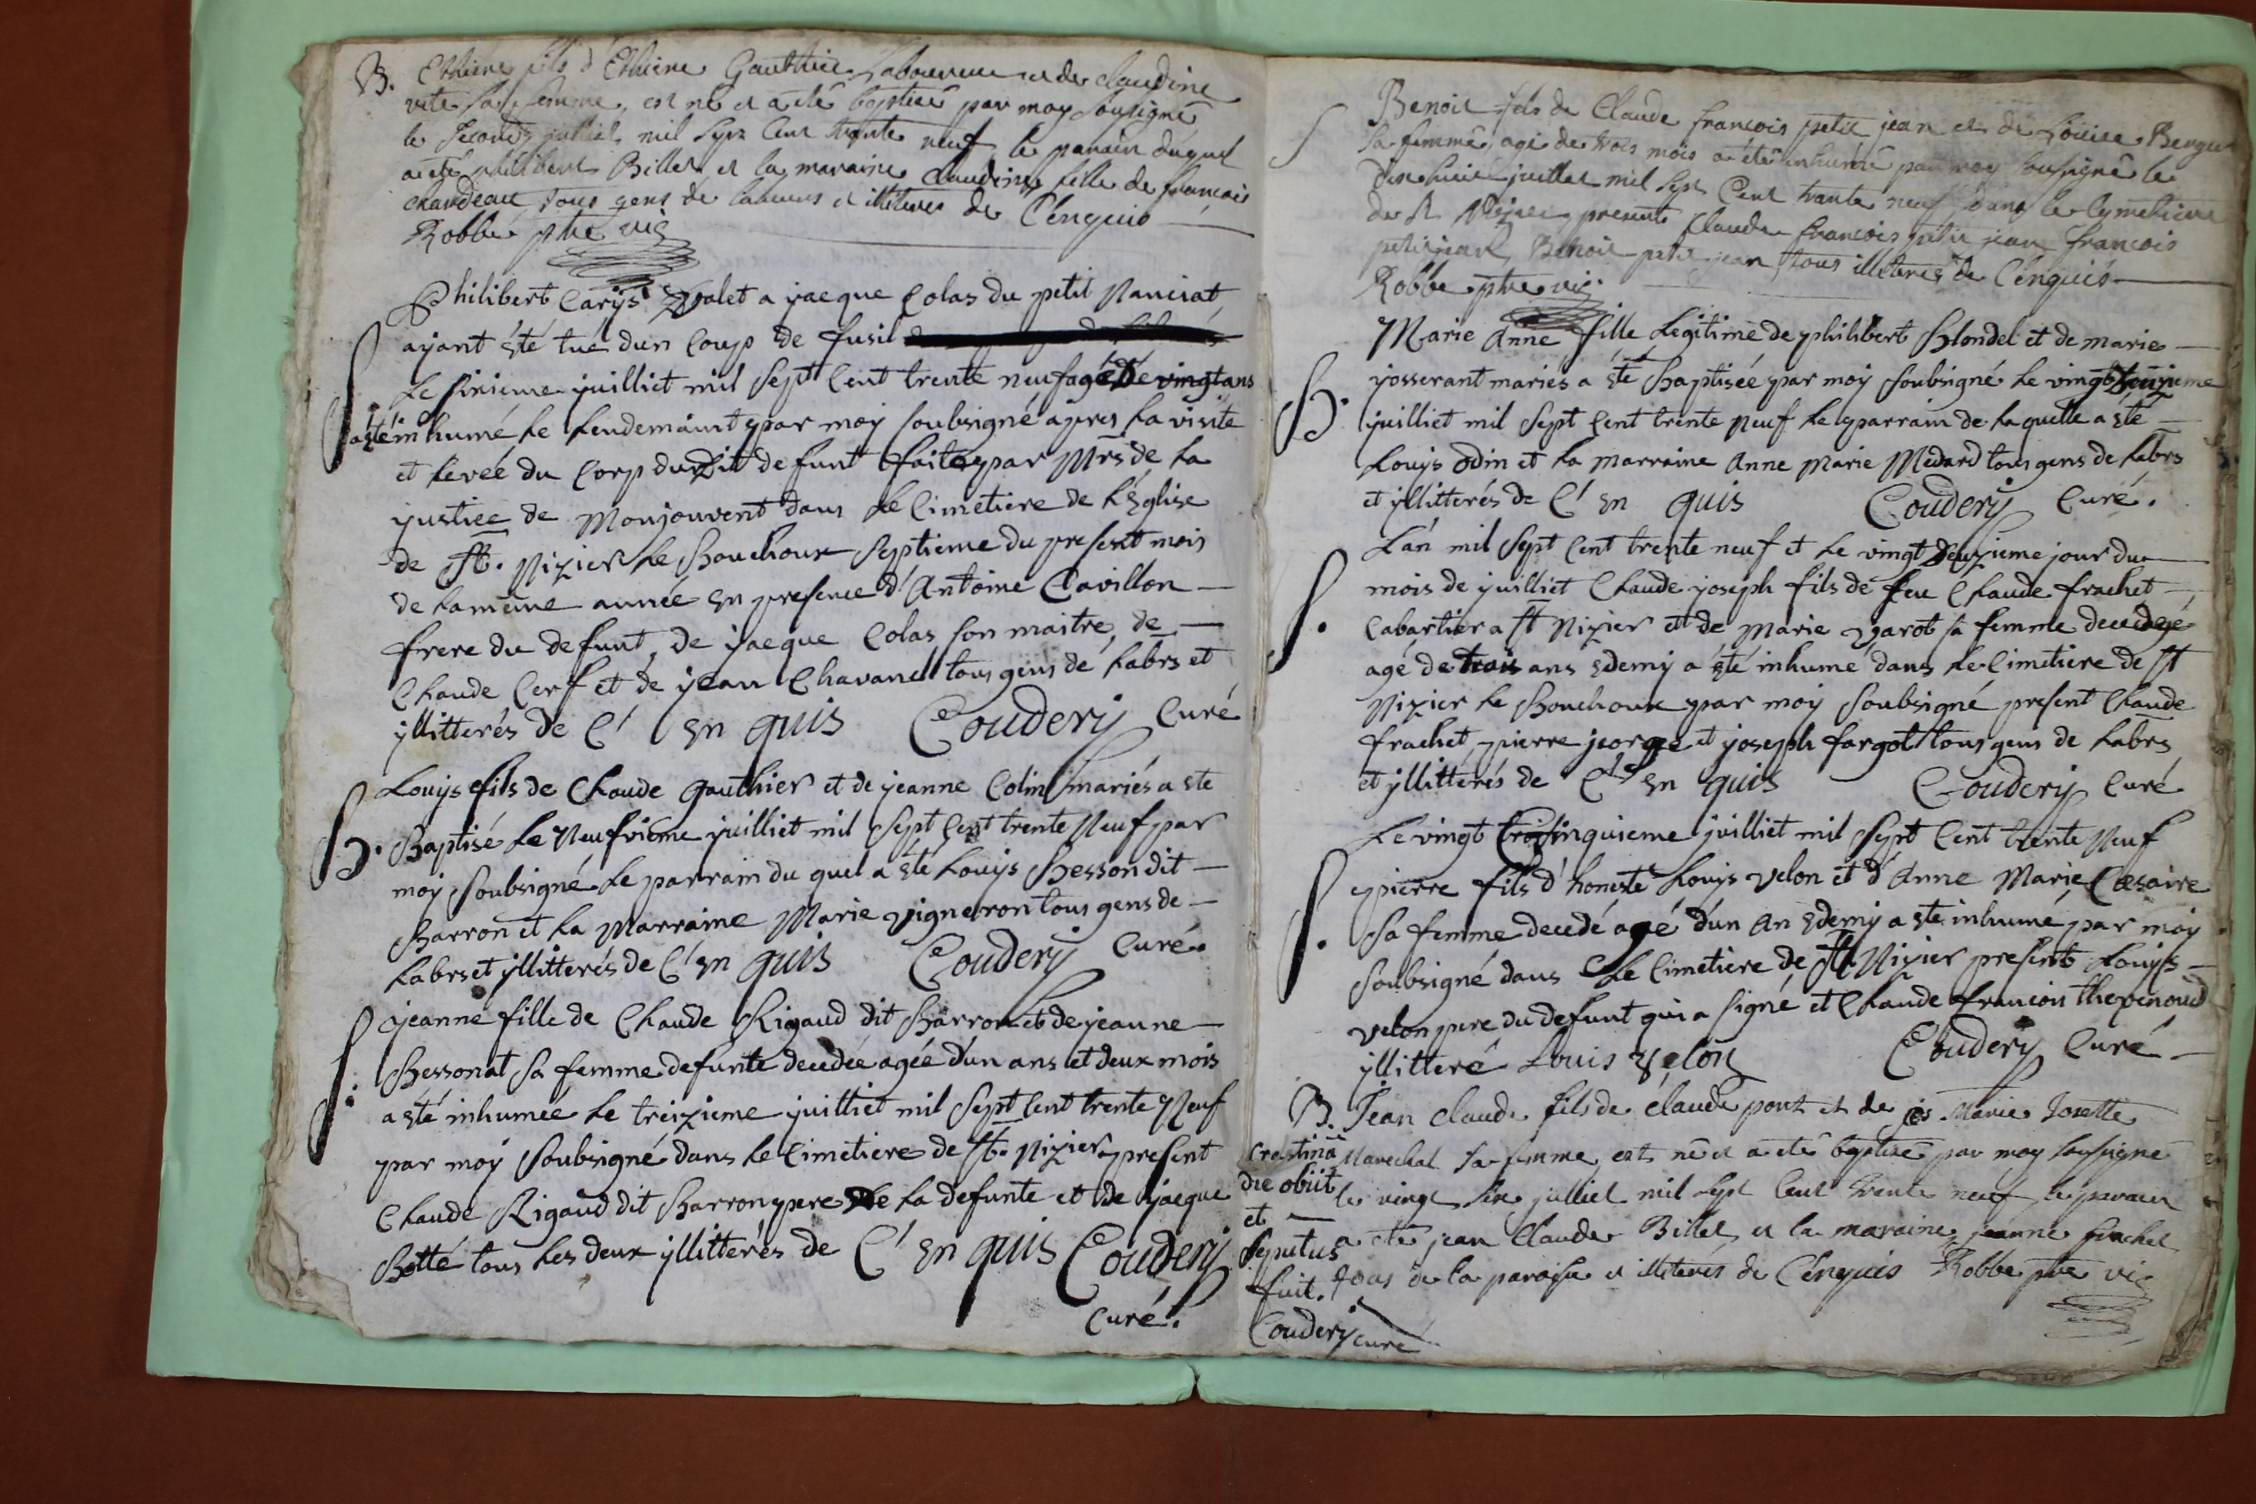 B. Ethiene fils d'Ethiene Gauthier Laboureur et de claudine
vite sa femme, est né et a été baptisé par moy soussigné
le second julliet mil sept cent trente neuf le parain duquel
a été philibert Billet et la maraine claudine fille de francois
chaudeau tous gens de labeurs et illiterés de Cénquis
Robbe ptre vic
Philibert Carÿs valet a jacque Colas du petit Nanciat
ayant ésté tué dun Coup de fusil
S. Le sixieme juilliet mil sept Cent trente neuf agé de vingt ans
a ésté inhumé le lendemaint par moy soubsigné apres la visite
et levée du Corp dudit defunt faite par Mrs de la
justice de Monjouvent dans le Cimetiere de l'église
de st. Nizier le Bouchoux septieme du present mois
de la même année en presence d'Antoine Cavillon
frere du defunt, de jacque Colas son maitre, de
Claude Cerf et de jean Chavanel tous gens de labrs et
yllitterés de C' en quis Coudery Curé
Louys fils de Claude Gauthier et de jeanne Colin mariés a esté
B. Baptisé le Neufvieme juilliet mil sept Cent trente Neuf par
moy soubsigné le parrain du quel a ésté Louys Besson dit
Barron et la Marraine Marie vigneron tous gens de
labrs et yllitterés de C' en quis Coudery Curé.
jeanne fille de Claude Rigaud dit Barron et de jeanne
S. Bessonat sa femme defunte decedée agée d'un ans et deux mois
a ésté inhumée le treizieme juilliet mil sept Cent trente Neuf
par moy soubsigné dans le Cimetiere de st. Nizier present
Claude Rigaud dit Barron pere de la defunte et de jacque
Botté tous les deux yllitterés de C' en quis Coudery
Curé.
S Benoit fils de Claude francois petit jean et de Loüise
sa femme, agé de trois mois a été inhumé par moy sousigné le
dix huit juillet mil sept Cent trante neuf dans le Cymetiere
de st Nizier presents Claude francois petit jean francois
petitjean, Benoit petit jean tous illiterés de Cénquis
Robbe ptre vic
Marie Anne fille legitime de philibert Blondel et de marie
B. josserant mariés a ésté Baptisée par moy soubsigné le vingt
juilliet mil sept Cent trente Neuf le parrain de laquelle a ésté
Louys Odin et la marraine Anne Marie Medard tous gens de labrs
et yllitterés de C' en quis Coudery Curé.
L'án mil sept Cent trente neuf et le vingt deuxieme jour du
S. mois de juilliet Claude joseph fils de feu Claude frachet
Cabartier a st Nizier et de Marie sa femme decedé
agé de trois ans &demy a ésté inhumé dans le Cimetiere de st
Nizier le Bouchoux par moy soubsigné present Claude
frachet, pierre jeorge et joseph fargot tous gens de labrs
et yllitterés de C' en quis Coudery Curé
Le vingt Cinquieme juilliet mil sept Cent trente Neuf
S. pierre fils d'honeste Louys velon et d'Anne Marie Cesaire
sa femme decedé agé d'un an &demy a esté inhumé par moy
soubsigné dans le Cimetiere de st. Nizier present Louys
velon pere du defunt qui a signé et Claude francoin thevenoud
yllitteré Louis velon Coudery Curé
B. Jean claude fils de claude pont et de Marie Josette
Marechal sa femme est né et a été baptisé par moy soussigné
le vingt six julliet mil sept cent trente neuf le parain
a été jean Claude Billet et la maraine jeanne frachet
tous de la paroisse et illiterés de Cénquis Robbe ptre vic
crastinâ
die obiit
et
sepultus
fuit.
Coudery curé